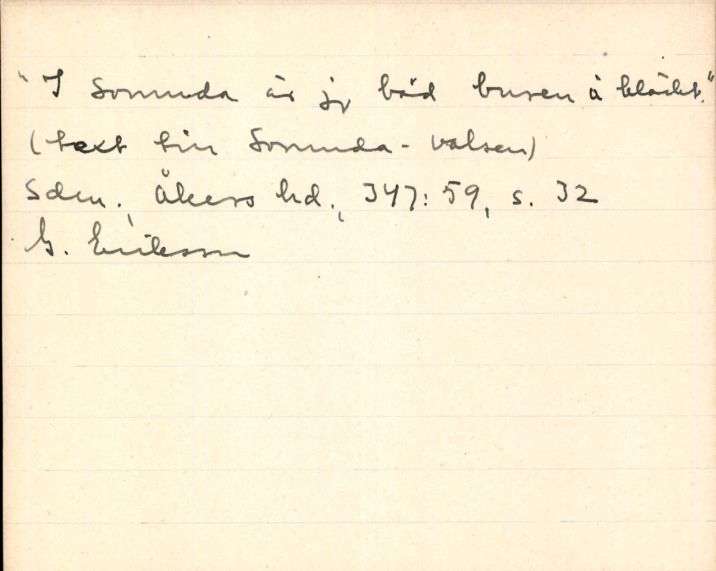 "I Sorunda är jj båd buren å klädd."
(text till Sorunda-valsen)
Sdm., Åkers hd., 347:59, s. 32
G. Eriksson